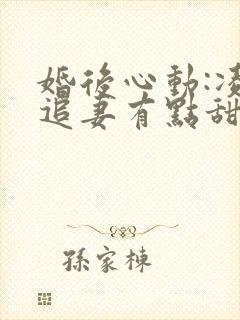 婚後心動:凌
追妻有點甜
孫家棟